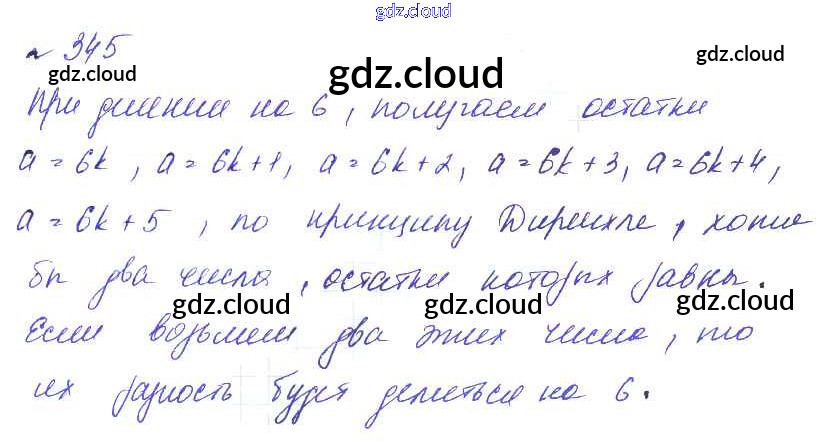 gdz.cloud
№ 345
gdz.cloud
gdz.cloud
При делении на 6, получаем остатки
a = 6k, a = 6k+1, a = 6k+2, a = 6k+3, a = 6k+4,
a = 6k+5, по принципу Дирихле, хотя
бы два числа, остатки которых равны.
gdz.cloud gdz.cloud gdz.cloud
Если возьмем два этих числа, то
их разность будет делиться на 6.